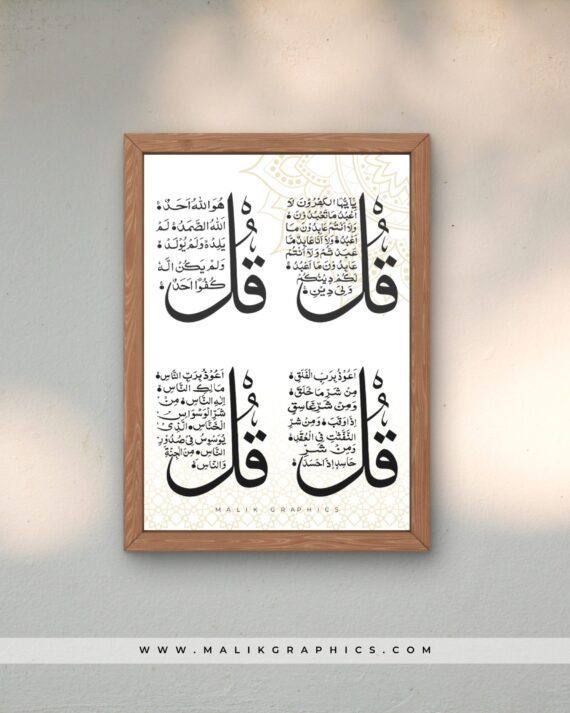 قُلْ
يٰۤاَيُّهَا الْكٰفِرُوْنَ لَاۤ
اَعْبُدُ مَا تَعْبُدُوْنَ
وَلَاۤ اَنْتُمْ عَابِدُوْنَ مَاۤ
اَعْبُدُ وَلَاۤ اَنَا عَابِدٌ مَّا
عَبَدْتُّمْ وَلَاۤ اَنْتُمْ
عَابِدُوْنَ مَاۤ اَعْبُدُ
لَكُمْ دِيْنُكُمْ
وَلِيَ دِيْنِ
قُلْ
هُوَ اللّٰهُ اَحَدٌ
اَللّٰهُ الصَّمَدُ لَمْ
يَلِدْ وَلَمْ يُوْلَدْ
وَلَمْ يَكُنْ لَّهٗ
كُفُوًا اَحَدٌ
قُلْ
اَعُوْذُ بِرَبِّ الْفَلَقِ
مِنْ شَرِّ مَا خَلَقَ
وَمِنْ شَرِّ غَاسِقٍ
اِذَا وَقَبَ وَمِنْ شَرِّ
النَّفّٰثٰتِ فِي الْعُقَدِ
وَمِنْ شَرِّ
حَاسِدٍ اِذَا حَسَدَ
قُلْ
اَعُوْذُ بِرَبِّ النَّاسِ
مَلِكِ النَّاسِ
اِلٰهِ النَّاسِ مِنْ
شَرِّ الْوَسْوَاسِ
الْخَنَّاسِ الَّذِيْ
يُوَسْوِسُ فِيْ صُدُوْرِ
النَّاسِ مِنَ الْجِنَّةِ
وَالنَّاسِ
MALIK GRAPHICS
WWW.MALIKGRAPHICS.COM